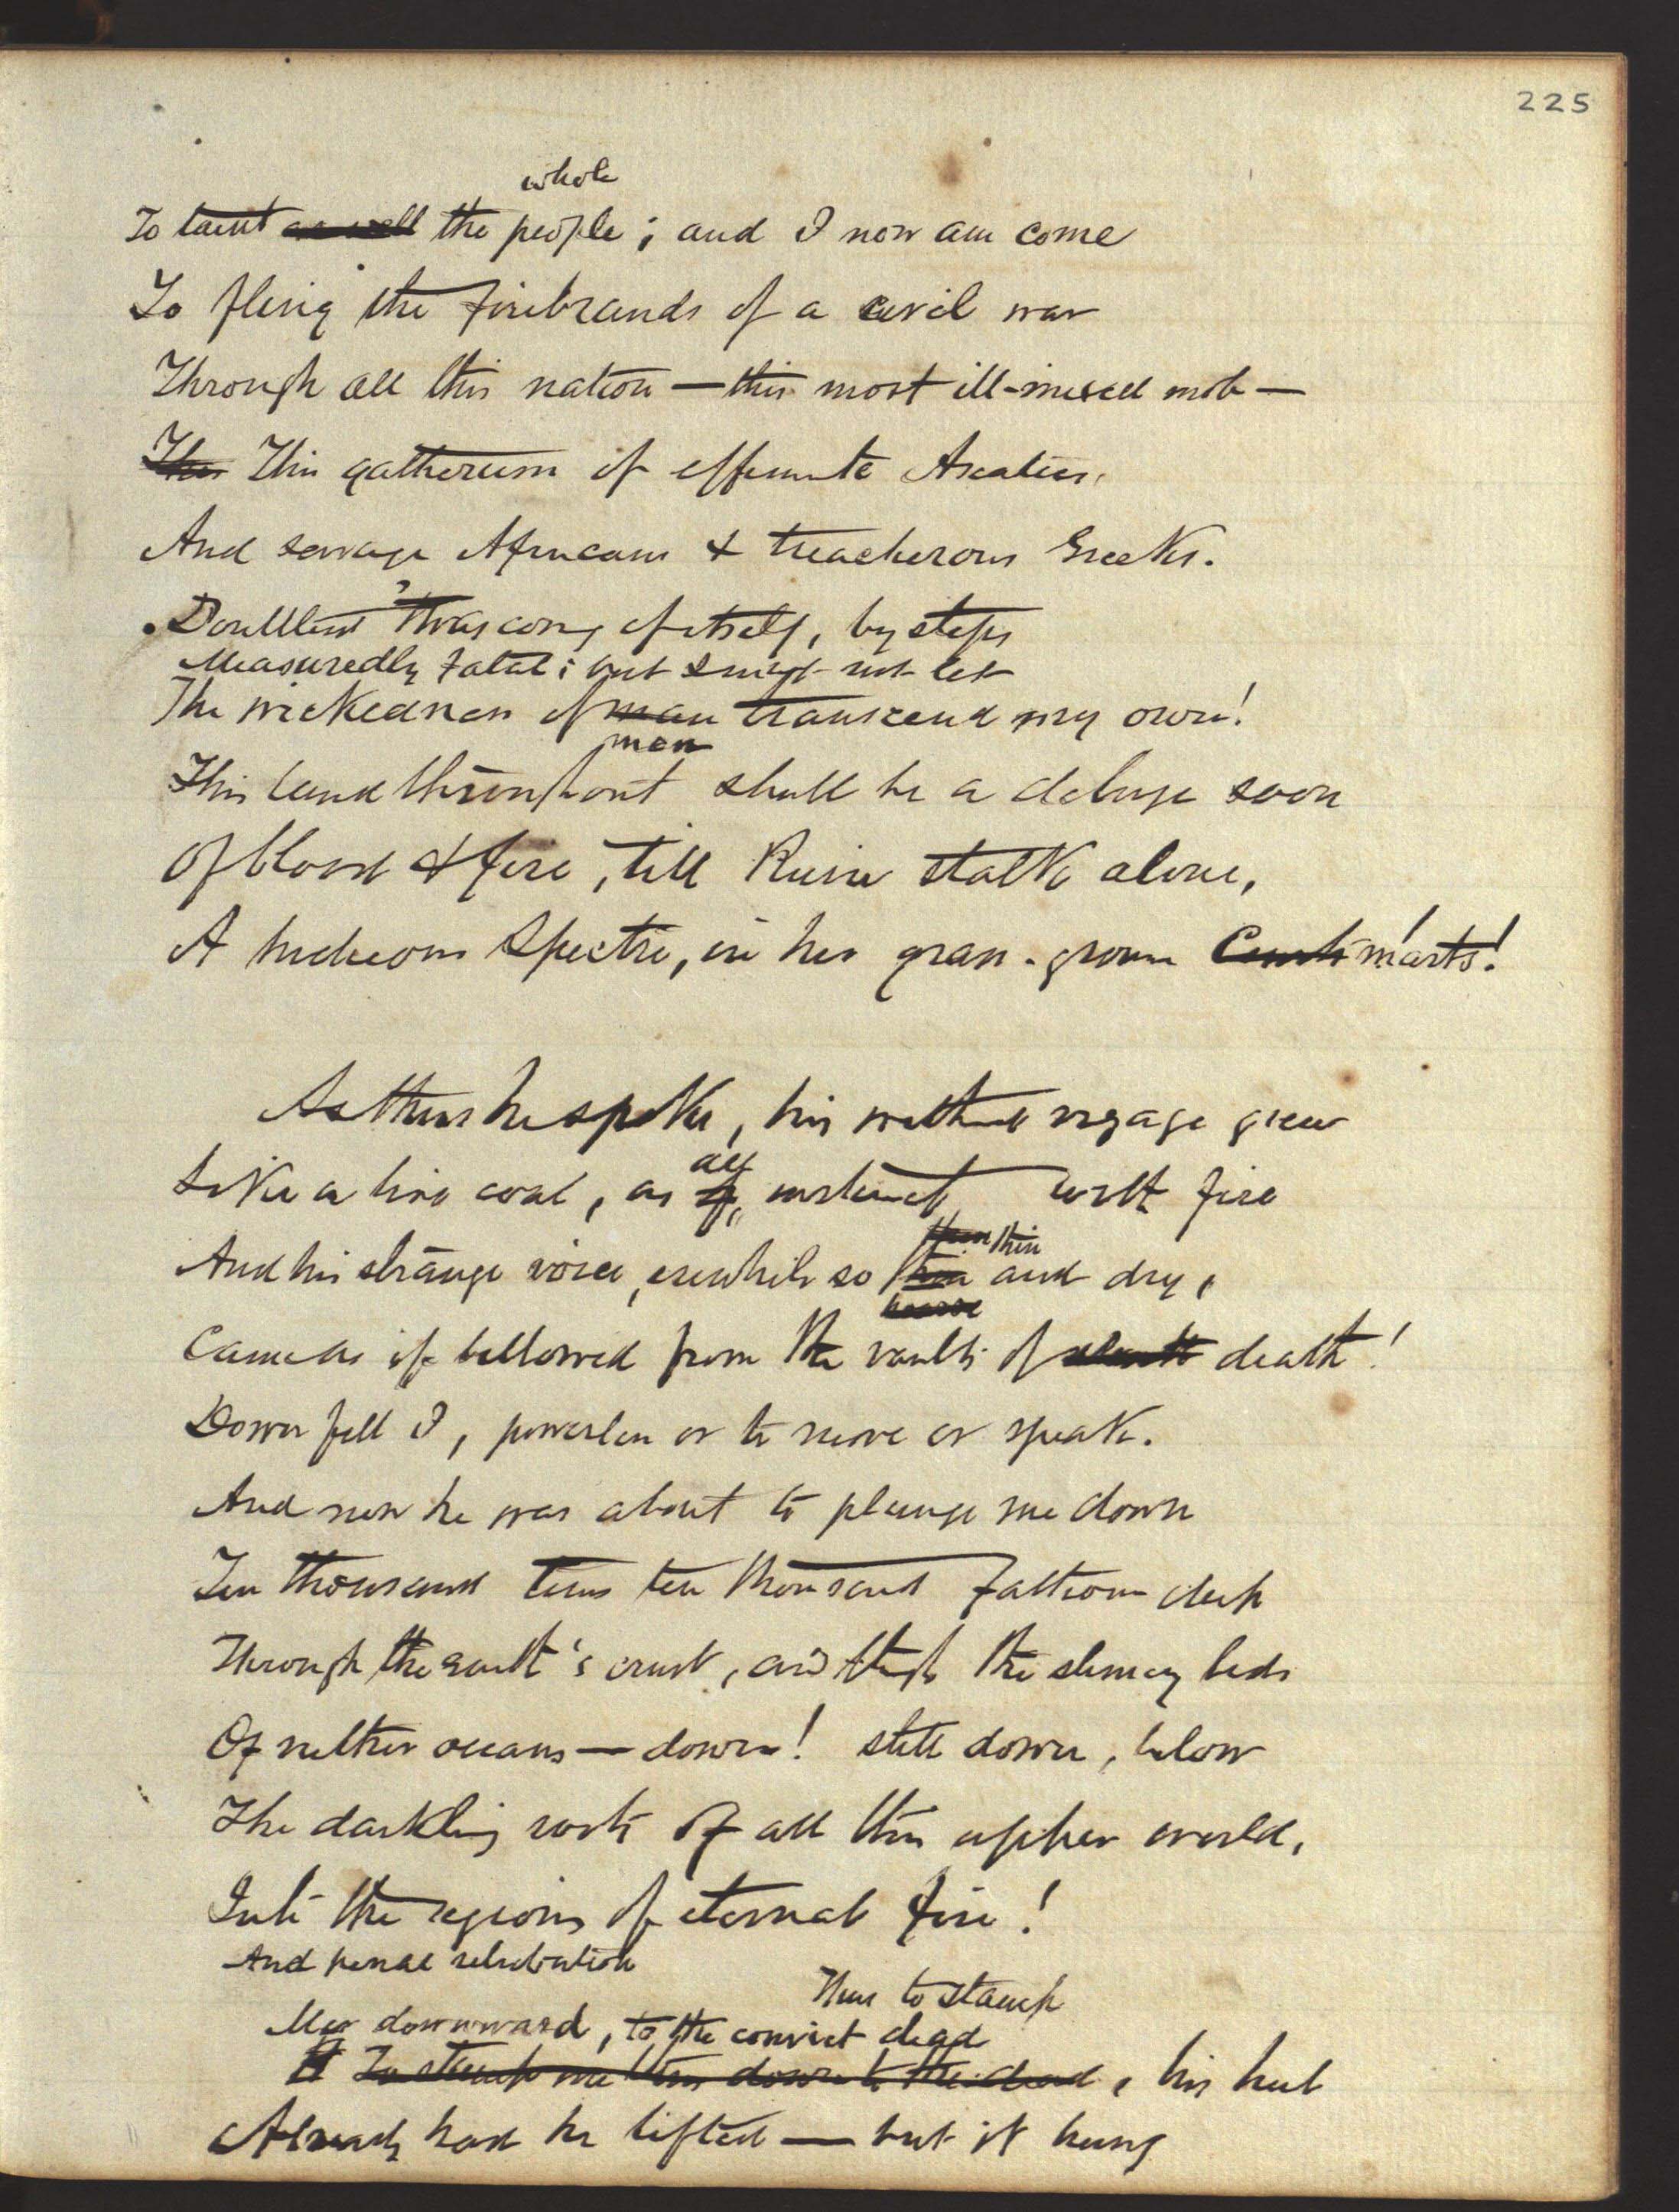 225
whole
To taint as well the people; and I now am come
To fling the firebrands of a civil war
Through all this nation — this most ill-mixed mob —
This This gatherum of effeminate Asiatics,
And savage Africans & treacherous Greeks.
Doubtless 'twas coming of itself, by steps
Measuredly fatal; but I might not let
The wickedness of man transcend my own!
men
This land throughout shall be a deluge soon
Of blood & fire, till Ruin stalk alone,
A hideous Spectre, in her grass-grown marts!
As thus he spoke, his withered visage grew
all
Like a live coal, as if, instinct with fire
thin thin
And his strange voice, erewhile so thin and dry,
hoarse
Came as if bellowed from the vaults of death!
Down fell I, powerless or to move or speak.
And now he was about to plunge me down
Ten thousand times ten thousand fathom deep
Through the earth's crust, and through the slimey beds
Of nether oceans — down! still down, below
The darkling roots of all this upper world,
Into the regions of eternal fire!
And penal retribution
Thus to stamp
Me downward, to the convict dead
To stamp me thus down to the dead, his heel
Already had he lifted — but it hung